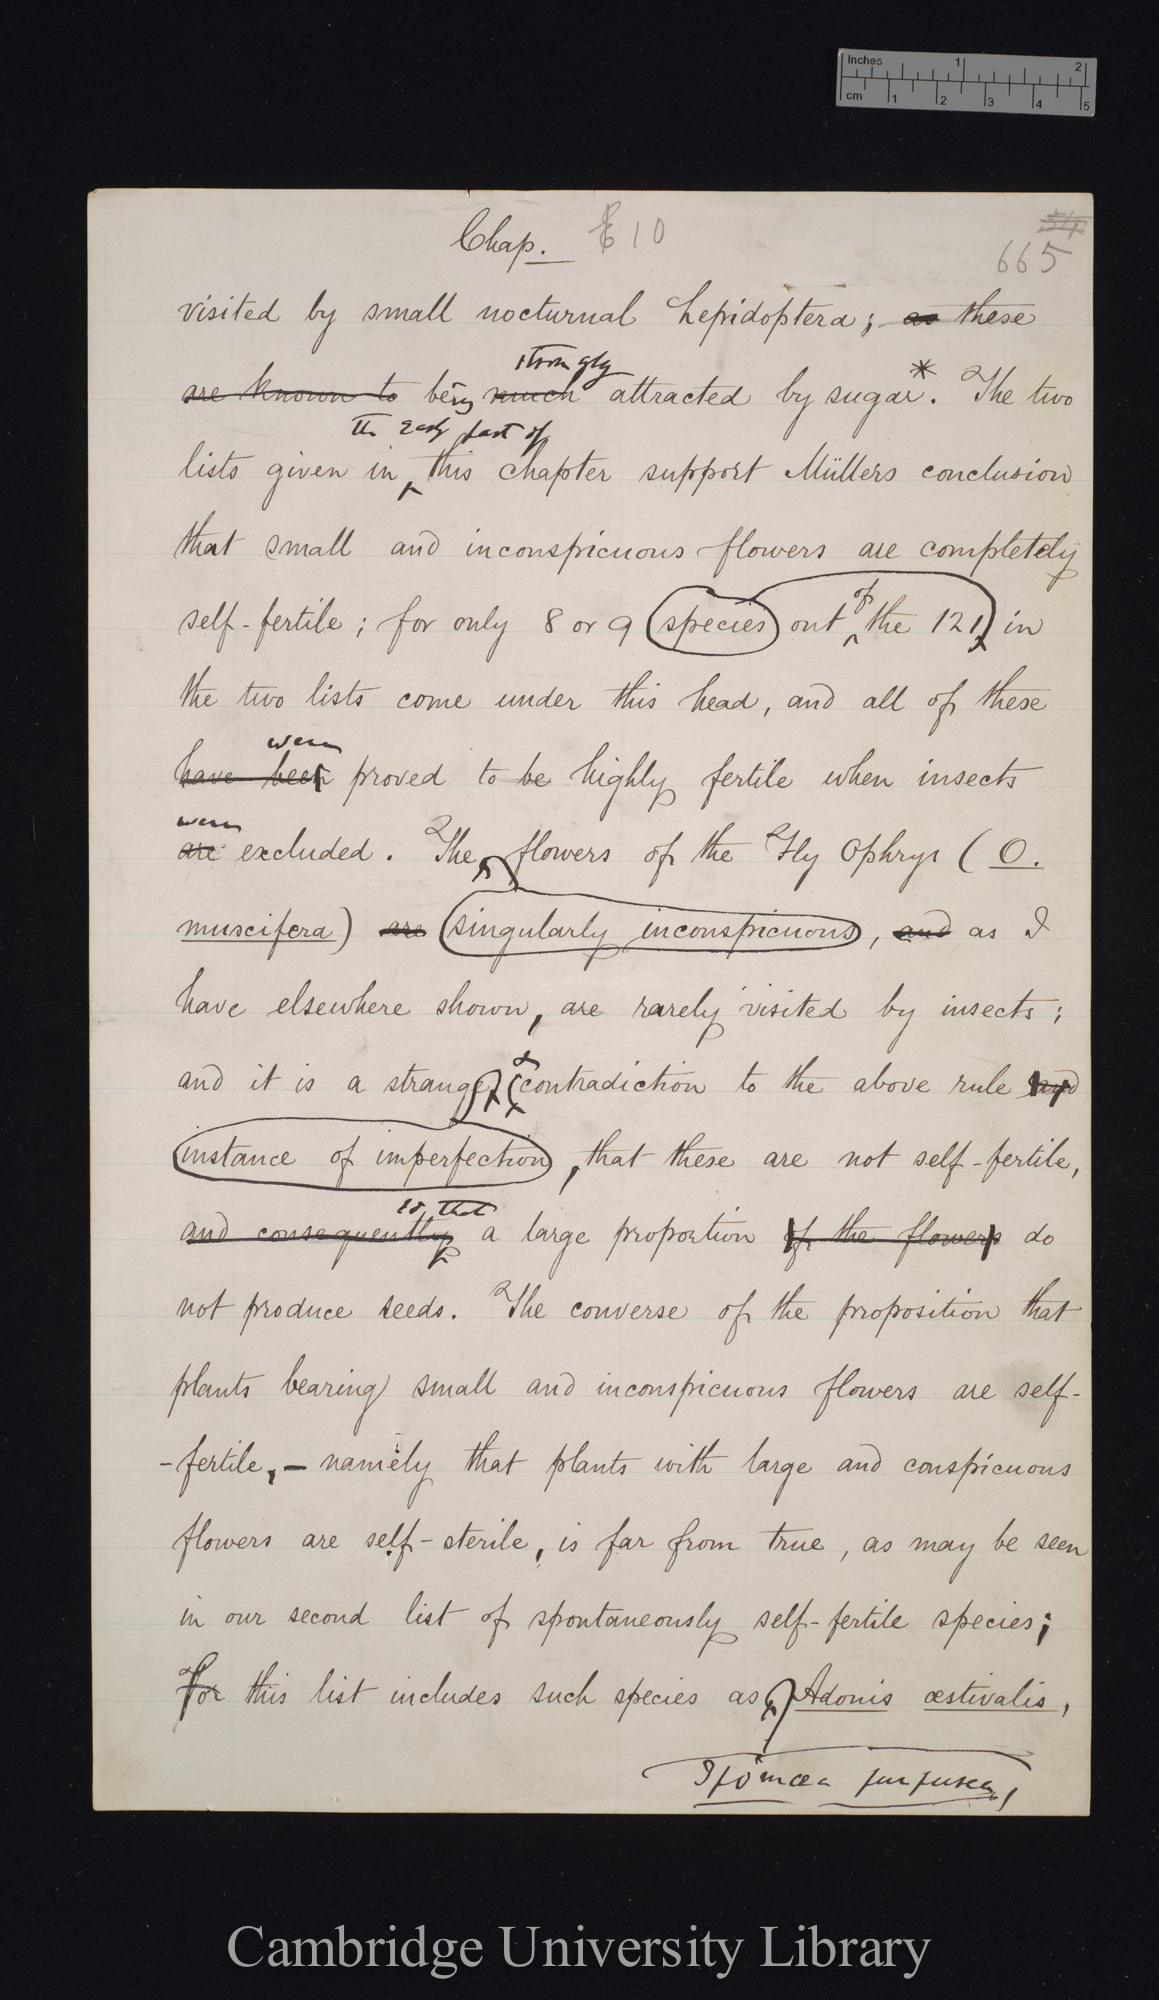 Inches 1 2
cm 1 2 3 4 5
Chap. 10
54
665
visited by small nocturnal Lepidoptera; as these
strongly
are known to being much attracted by sugar*. The two
the early part of
lists given in this chapter support Müllers conclusion
that small and inconspicuous flowers are completely
of
self-fertile; for only 8 or 9 species out the 121 in
the two lists come under this head, and all of these
were
have been proved to be highly fertile when insects
were
are excluded. The flowers of the Fly Ophrys (O.
muscifera) are singularly inconspicuous, and as I
have elsewhere shown, are rarely visited by insects;
&
and it is a strange contradiction to the above rule and
instance of imperfection, that these are not self-fertile,
so that
and consequently a large proportion of the flowers do
not produce seeds. The converse of the proposition that
plants bearing small and inconspicuous flowers are self-
-fertile, – namely that plants with large and conspicuous
flowers are self-sterile, is far from true, as may be seen
in our second list of spontaneously self-fertile species;
For this list includes such species as Adonis æstivalis,
Ipomœa purpurea,
Cambridge University Library